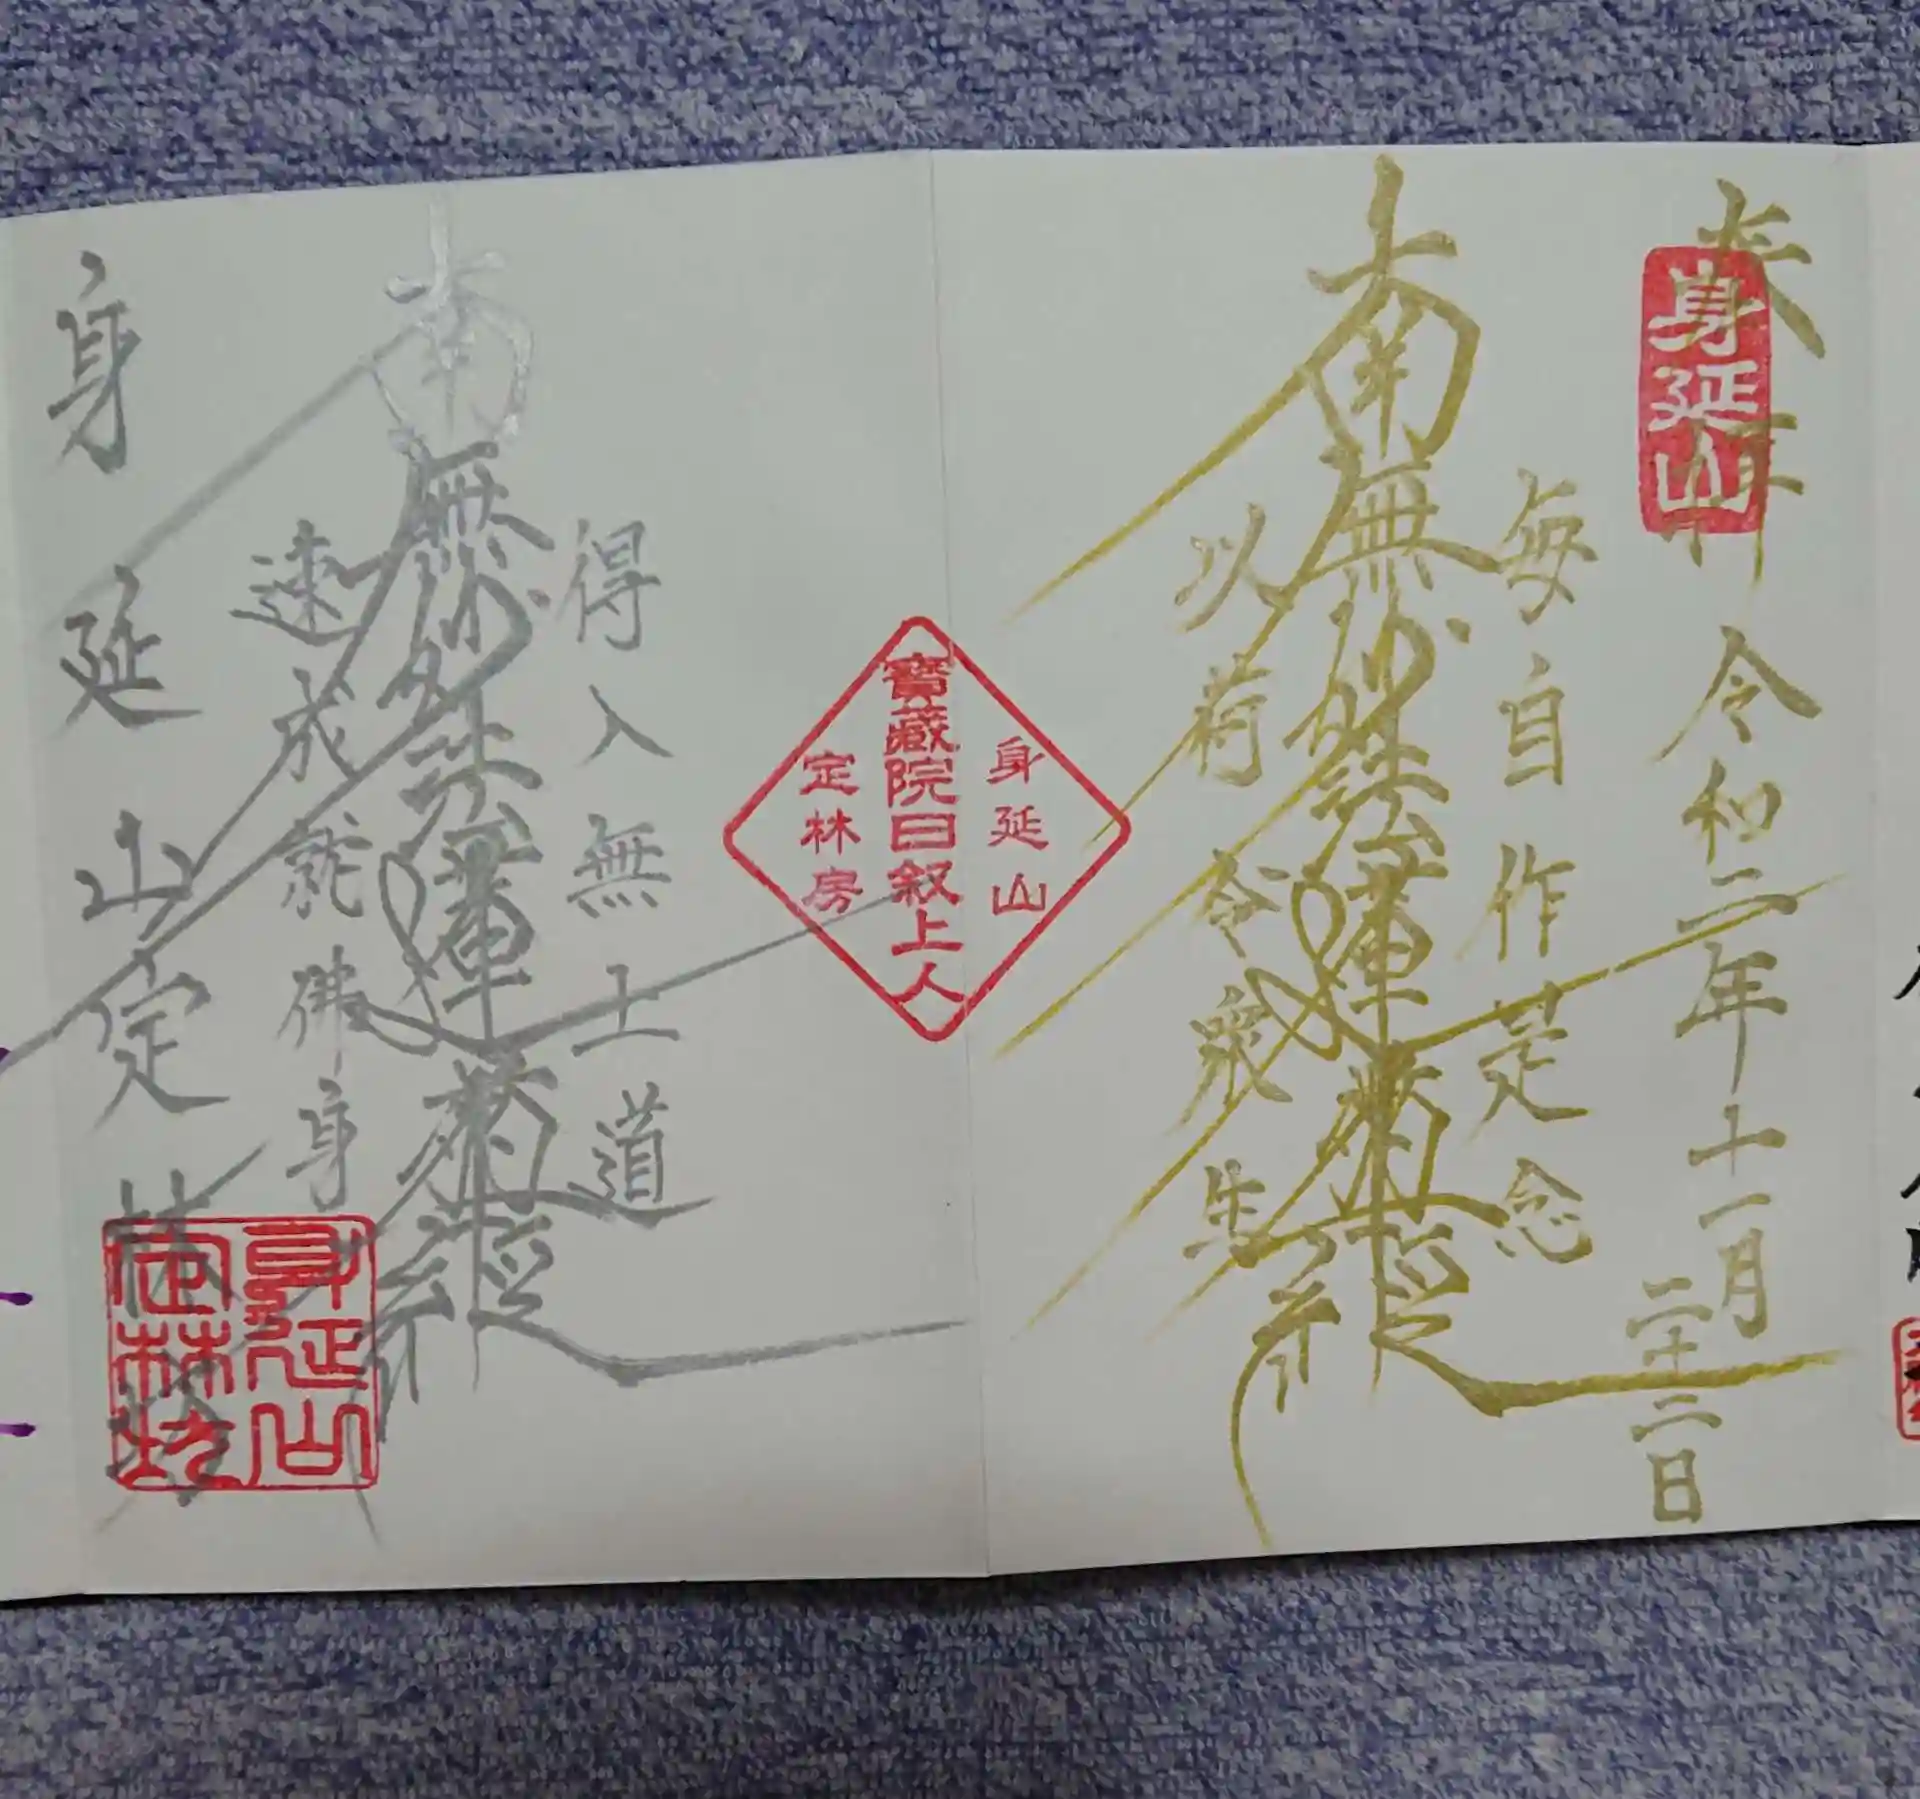 奉拝
身延山
令和二年十一月二十二日
毎自作是念
南無妙法蓮華經
以荷令衆生
身延山
寶蔵院日叙上人
定林房
得入無上道
南無妙法蓮華經
速成就佛身
身延山定林坊
身延山
定林坊